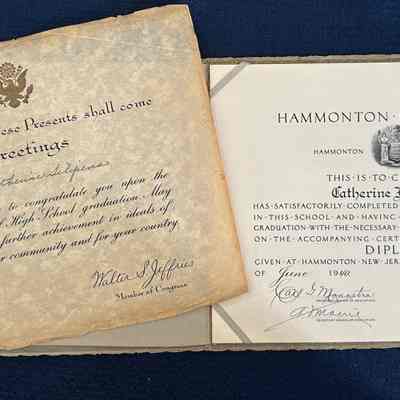 ese Presents shall come
reetings
to congratulate you upon the
High-School graduation. May
further achievement in ideals of
r community and for your country.
Walter S. Jeffries
Member of Congress
HAMMONTON
HAMMONTON
THIS IS TO C
Catherine
HAS SATISFACTORILY COMPLETED
IN THIS SCHOOL AND HAVING
GRADUATION WITH THE NECESSARY
ON THE ACCOMPANYING CERT
DIPL
GIVEN AT HAMMONTON NEW JER
OF June 1940